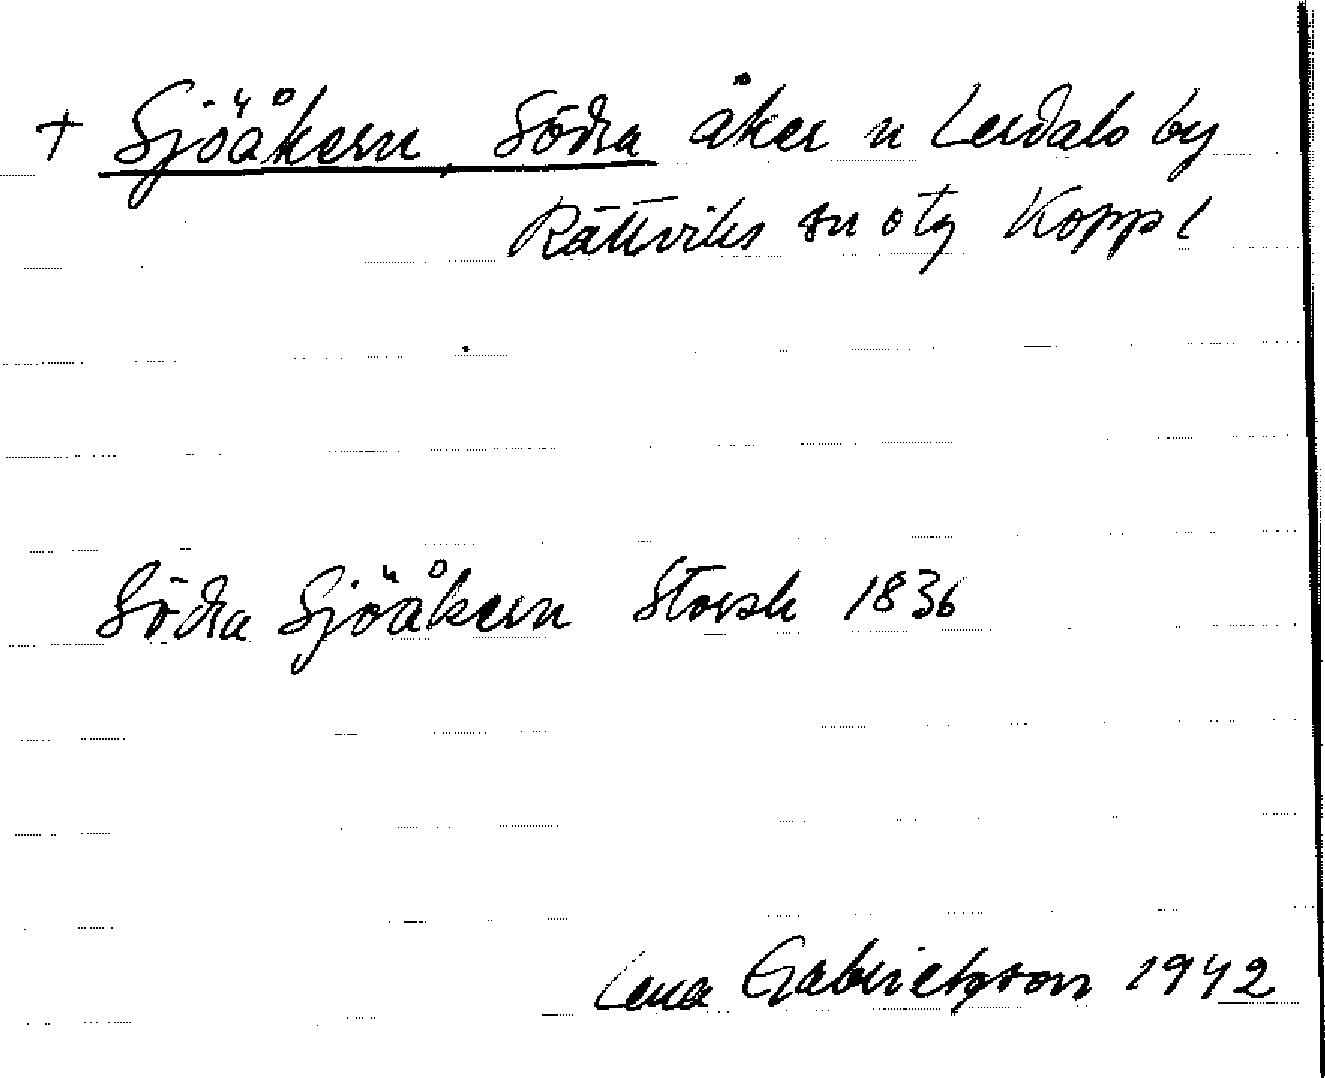 + Sjöåkern, Södra åker n Lerdals by
Rättviks sn o tg Kopp l
Södra Sjöåkern Storsk 1836
Lena Gabrielsson 1942